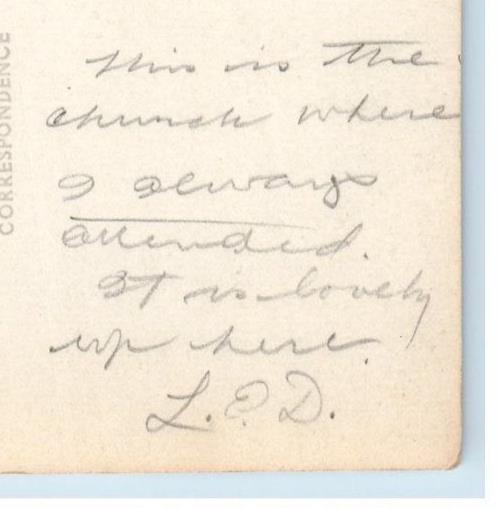 This is the
church where
I always
attended.
It is lovely
up here.
L.E.D.
CORRESPONDENCE